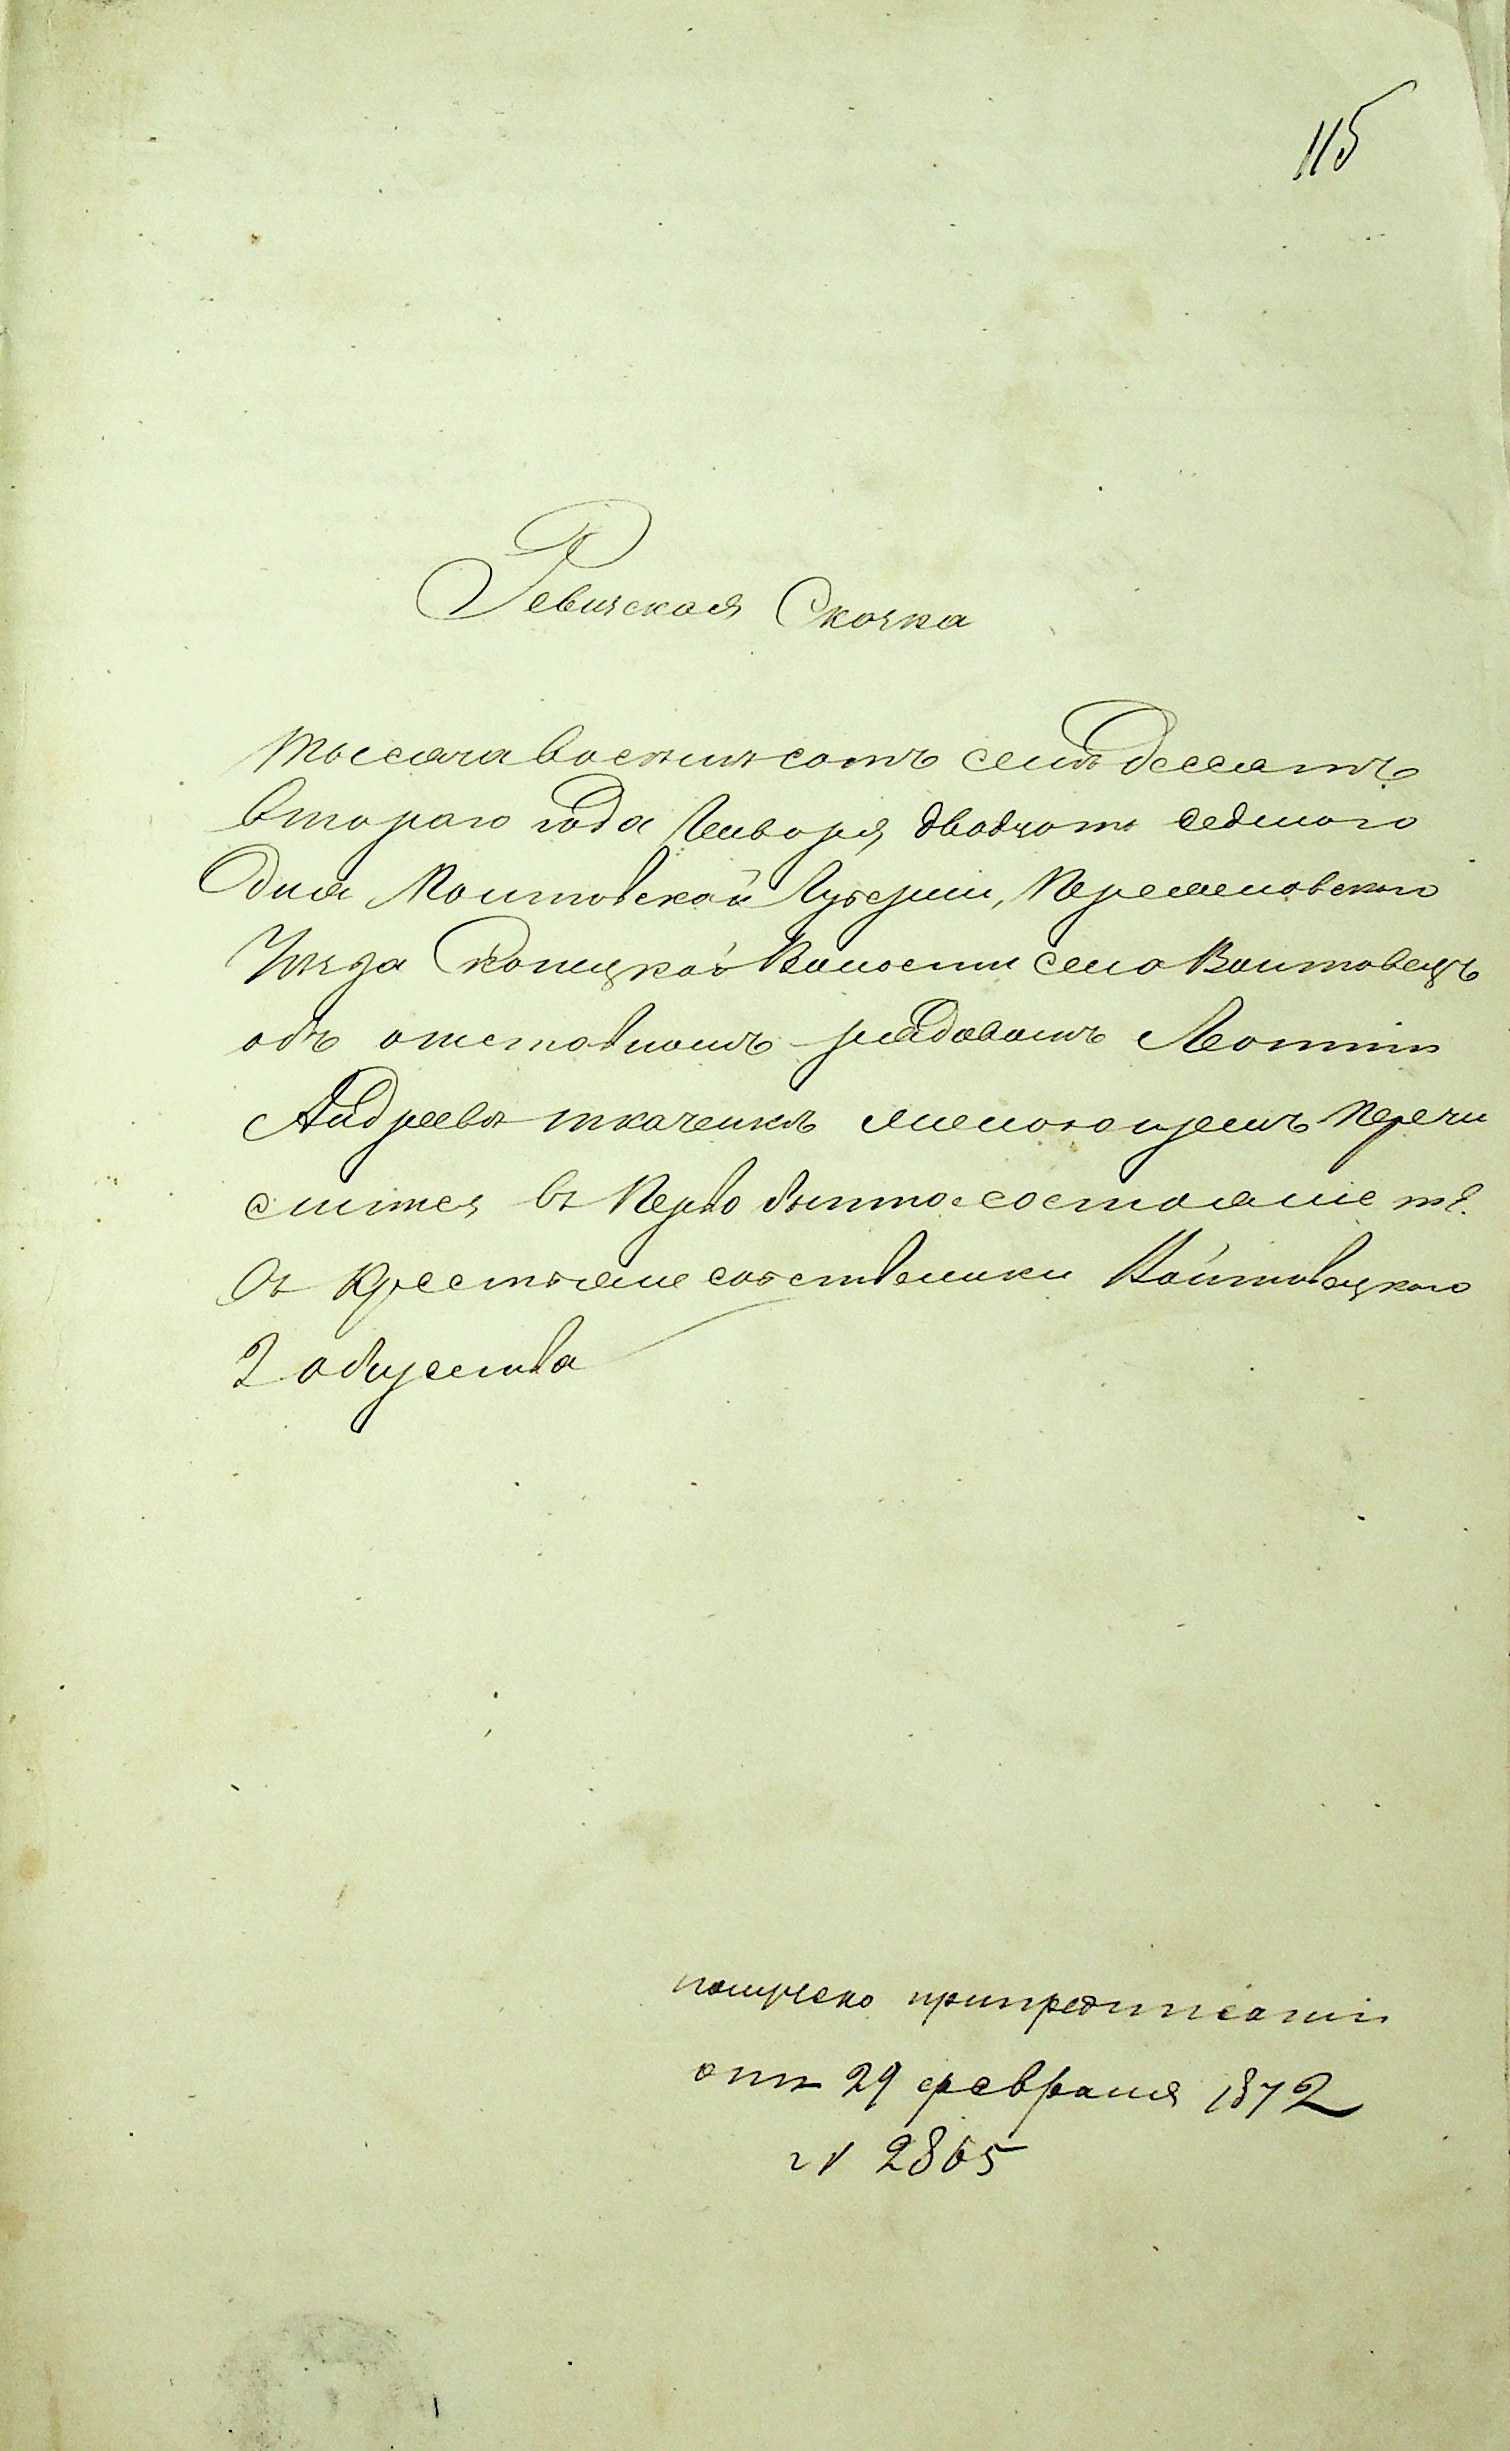 115
Ревизская Скозка
Тысяча восемьсотъ семьдесятъ
втораго года Генворя двадцать седмого
дня Полтовской Губерніи, Переяславского
Уезда Копецкой Волости село Воитовецъ
объ отставномъ рядовомъ Леонтіи
Андреевъ ткаченкъ желающемъ перечи
слится въ Перво бытное состояніе т. е.
въ Крестьяне собственики Войтовецкого
2 общества
получено припредписаніи
отъ 29 февраля 1872
№ 2865